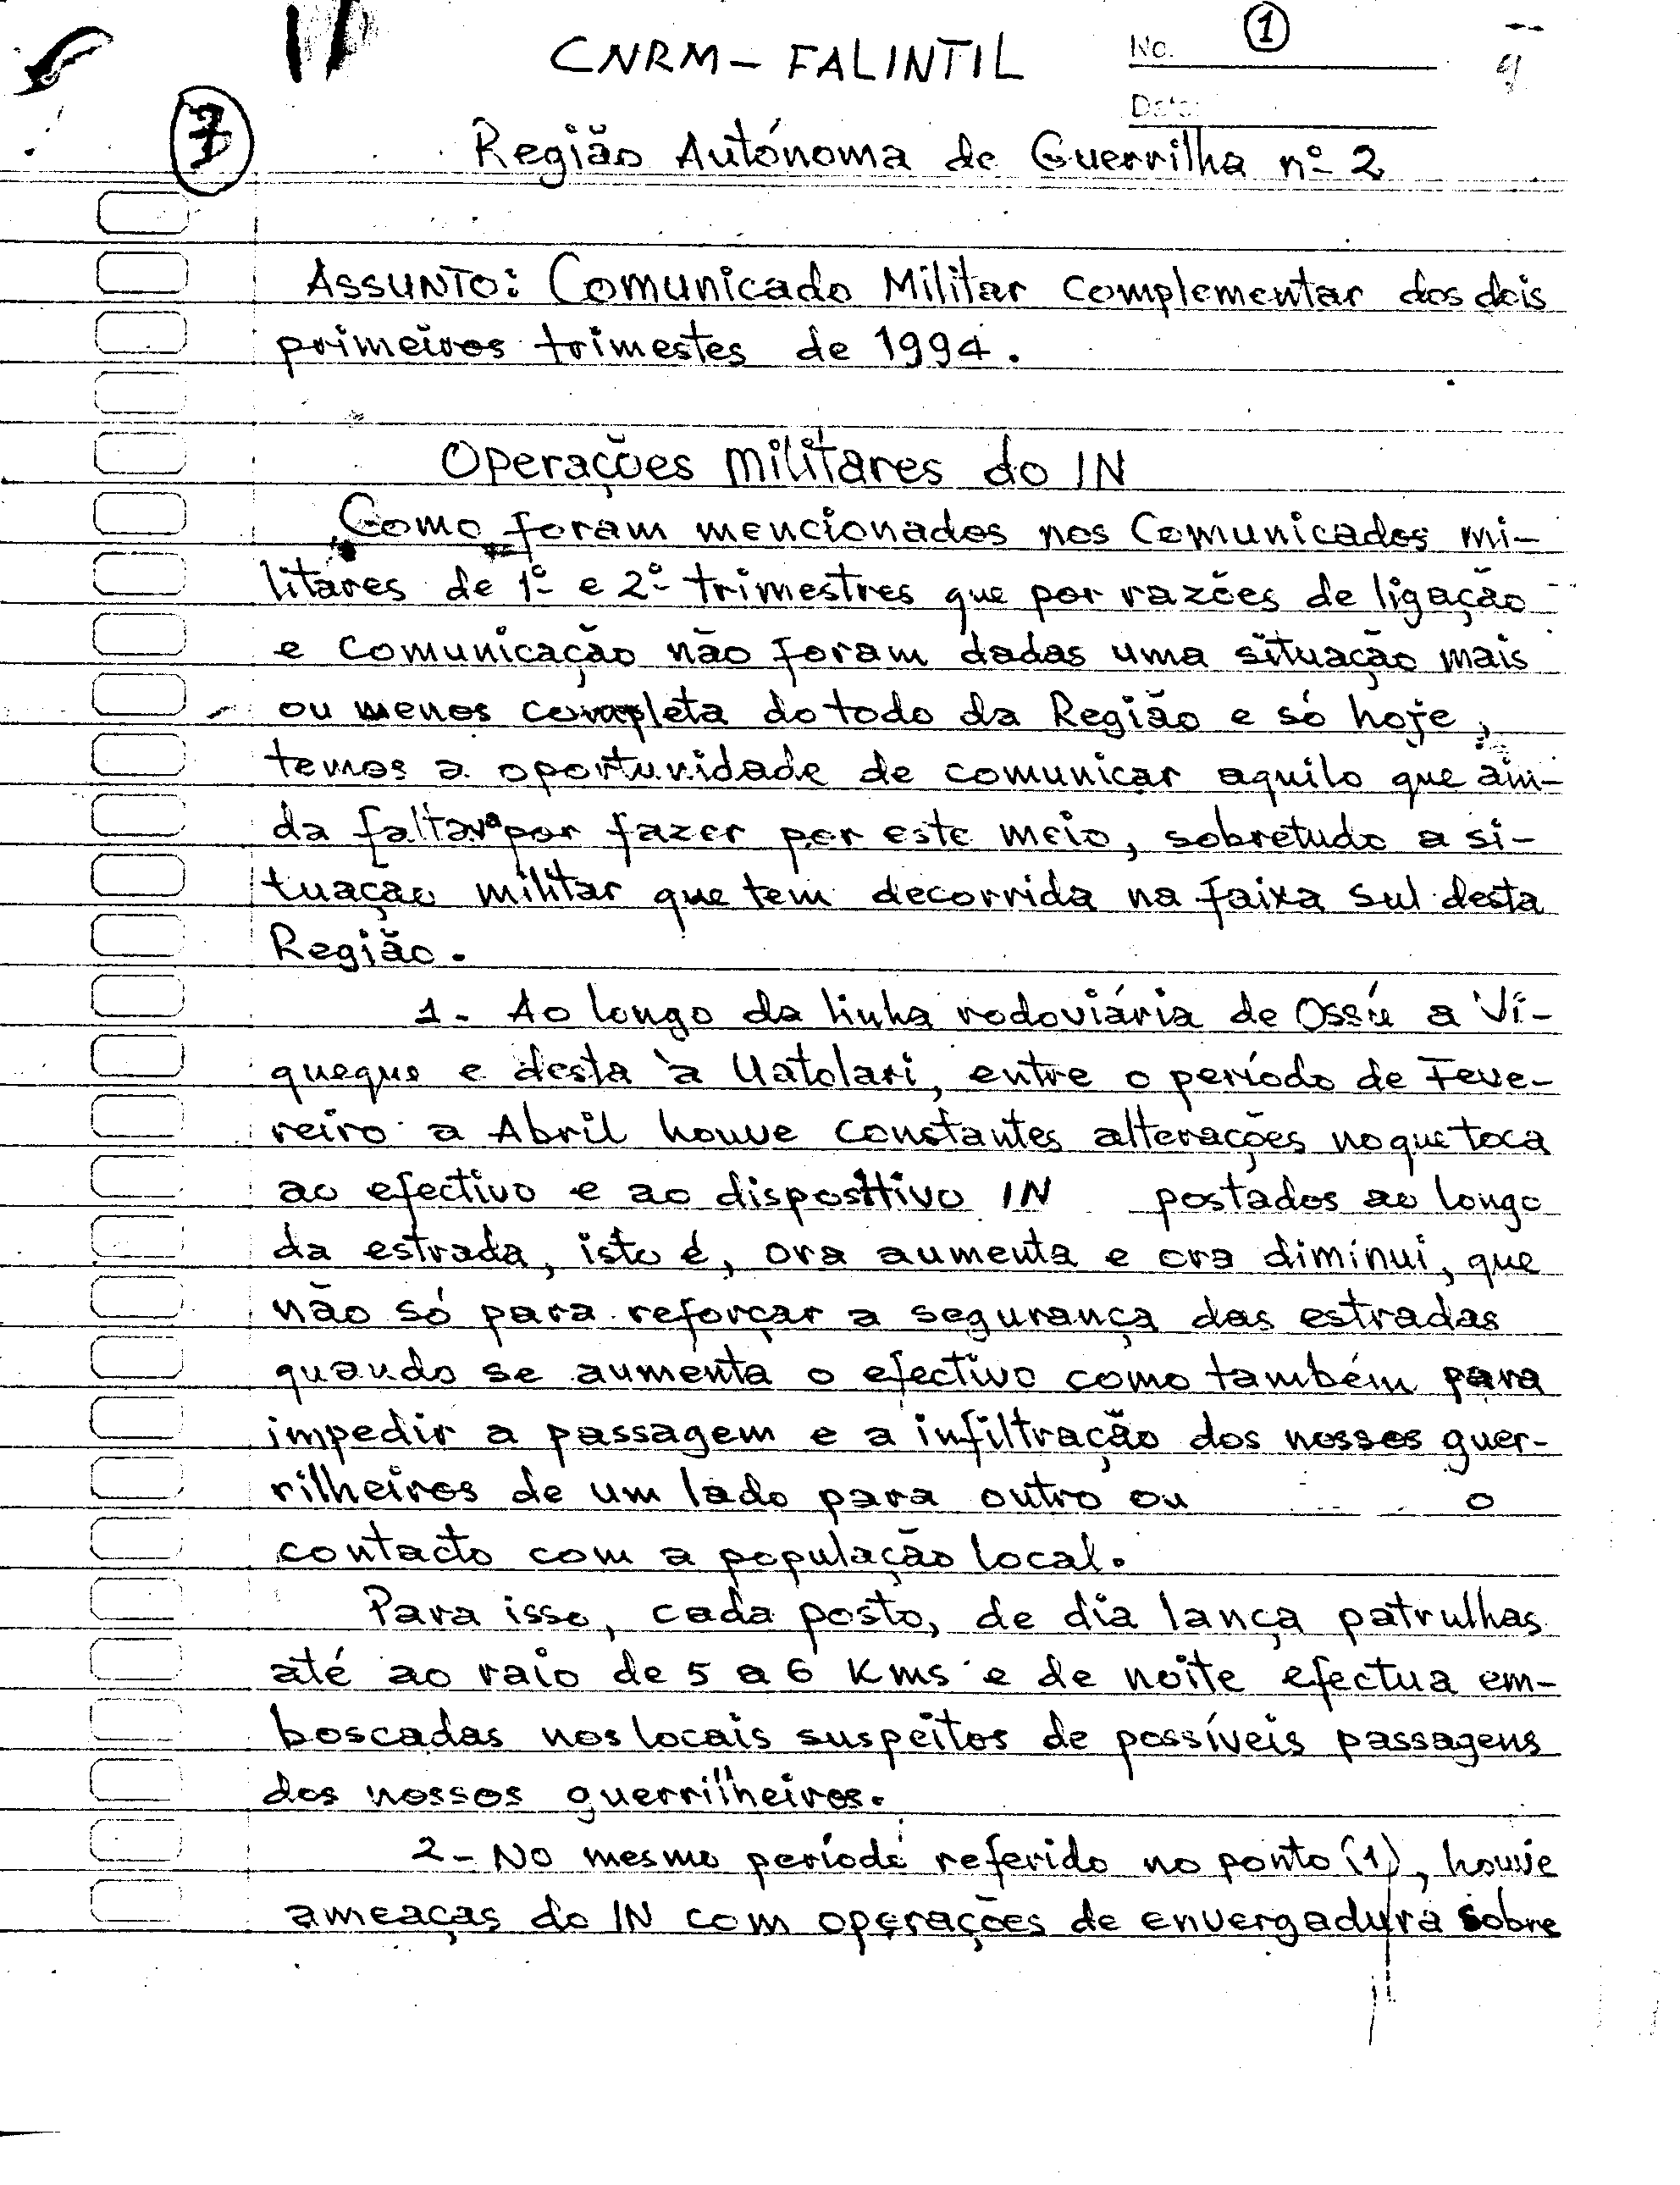 CNRM - FALINTIL
No. 1
Date:
7
Região Autónoma de Guerrilha nº 2
ASSUNTO: Comunicado Militar complementar dos dois
primeiros trimestes de 1994.
Operações militares do IN
Como foram mencionados nos Comunicados mi-
litares de 1º e 2º trimestres que por razões de ligação
e comunicação não foram dadas uma situação mais
ou menos completa do todo da Região e só hoje,
temos a oportunidade de comunicar aquilo que ain-
da faltava por fazer por este meio, sobretudo a si-
tuação militar que tem decorrida na faixa sul desta
Região.
1- Ao longo da linha rodoviária de Ossú a Vi-
queque e desta à Uatolari, entre o período de Feve-
reiro a Abril houve constantes alterações no que toca
ao efectivo e ao dispositivo IN postados ao longo
da estrada, isto é, ora aumenta e ora diminui, que
não só para reforçar a segurança das estradas
quando se aumenta o efectivo como também para
impedir a passagem e a infiltração dos nossos guer-
rilheiros de um lado para outro ou o
contacto com a população local.
Para isso, cada posto, de dia lança patrulhas
até ao raio de 5 a 6 Kms e de noite efectua em-
boscadas nos locais suspeitos de possíveis passagens
dos nossos guerrilheiros.
2- No mesmo período referido no ponto (1), houve
ameaças do IN com operações de envergadura sobre